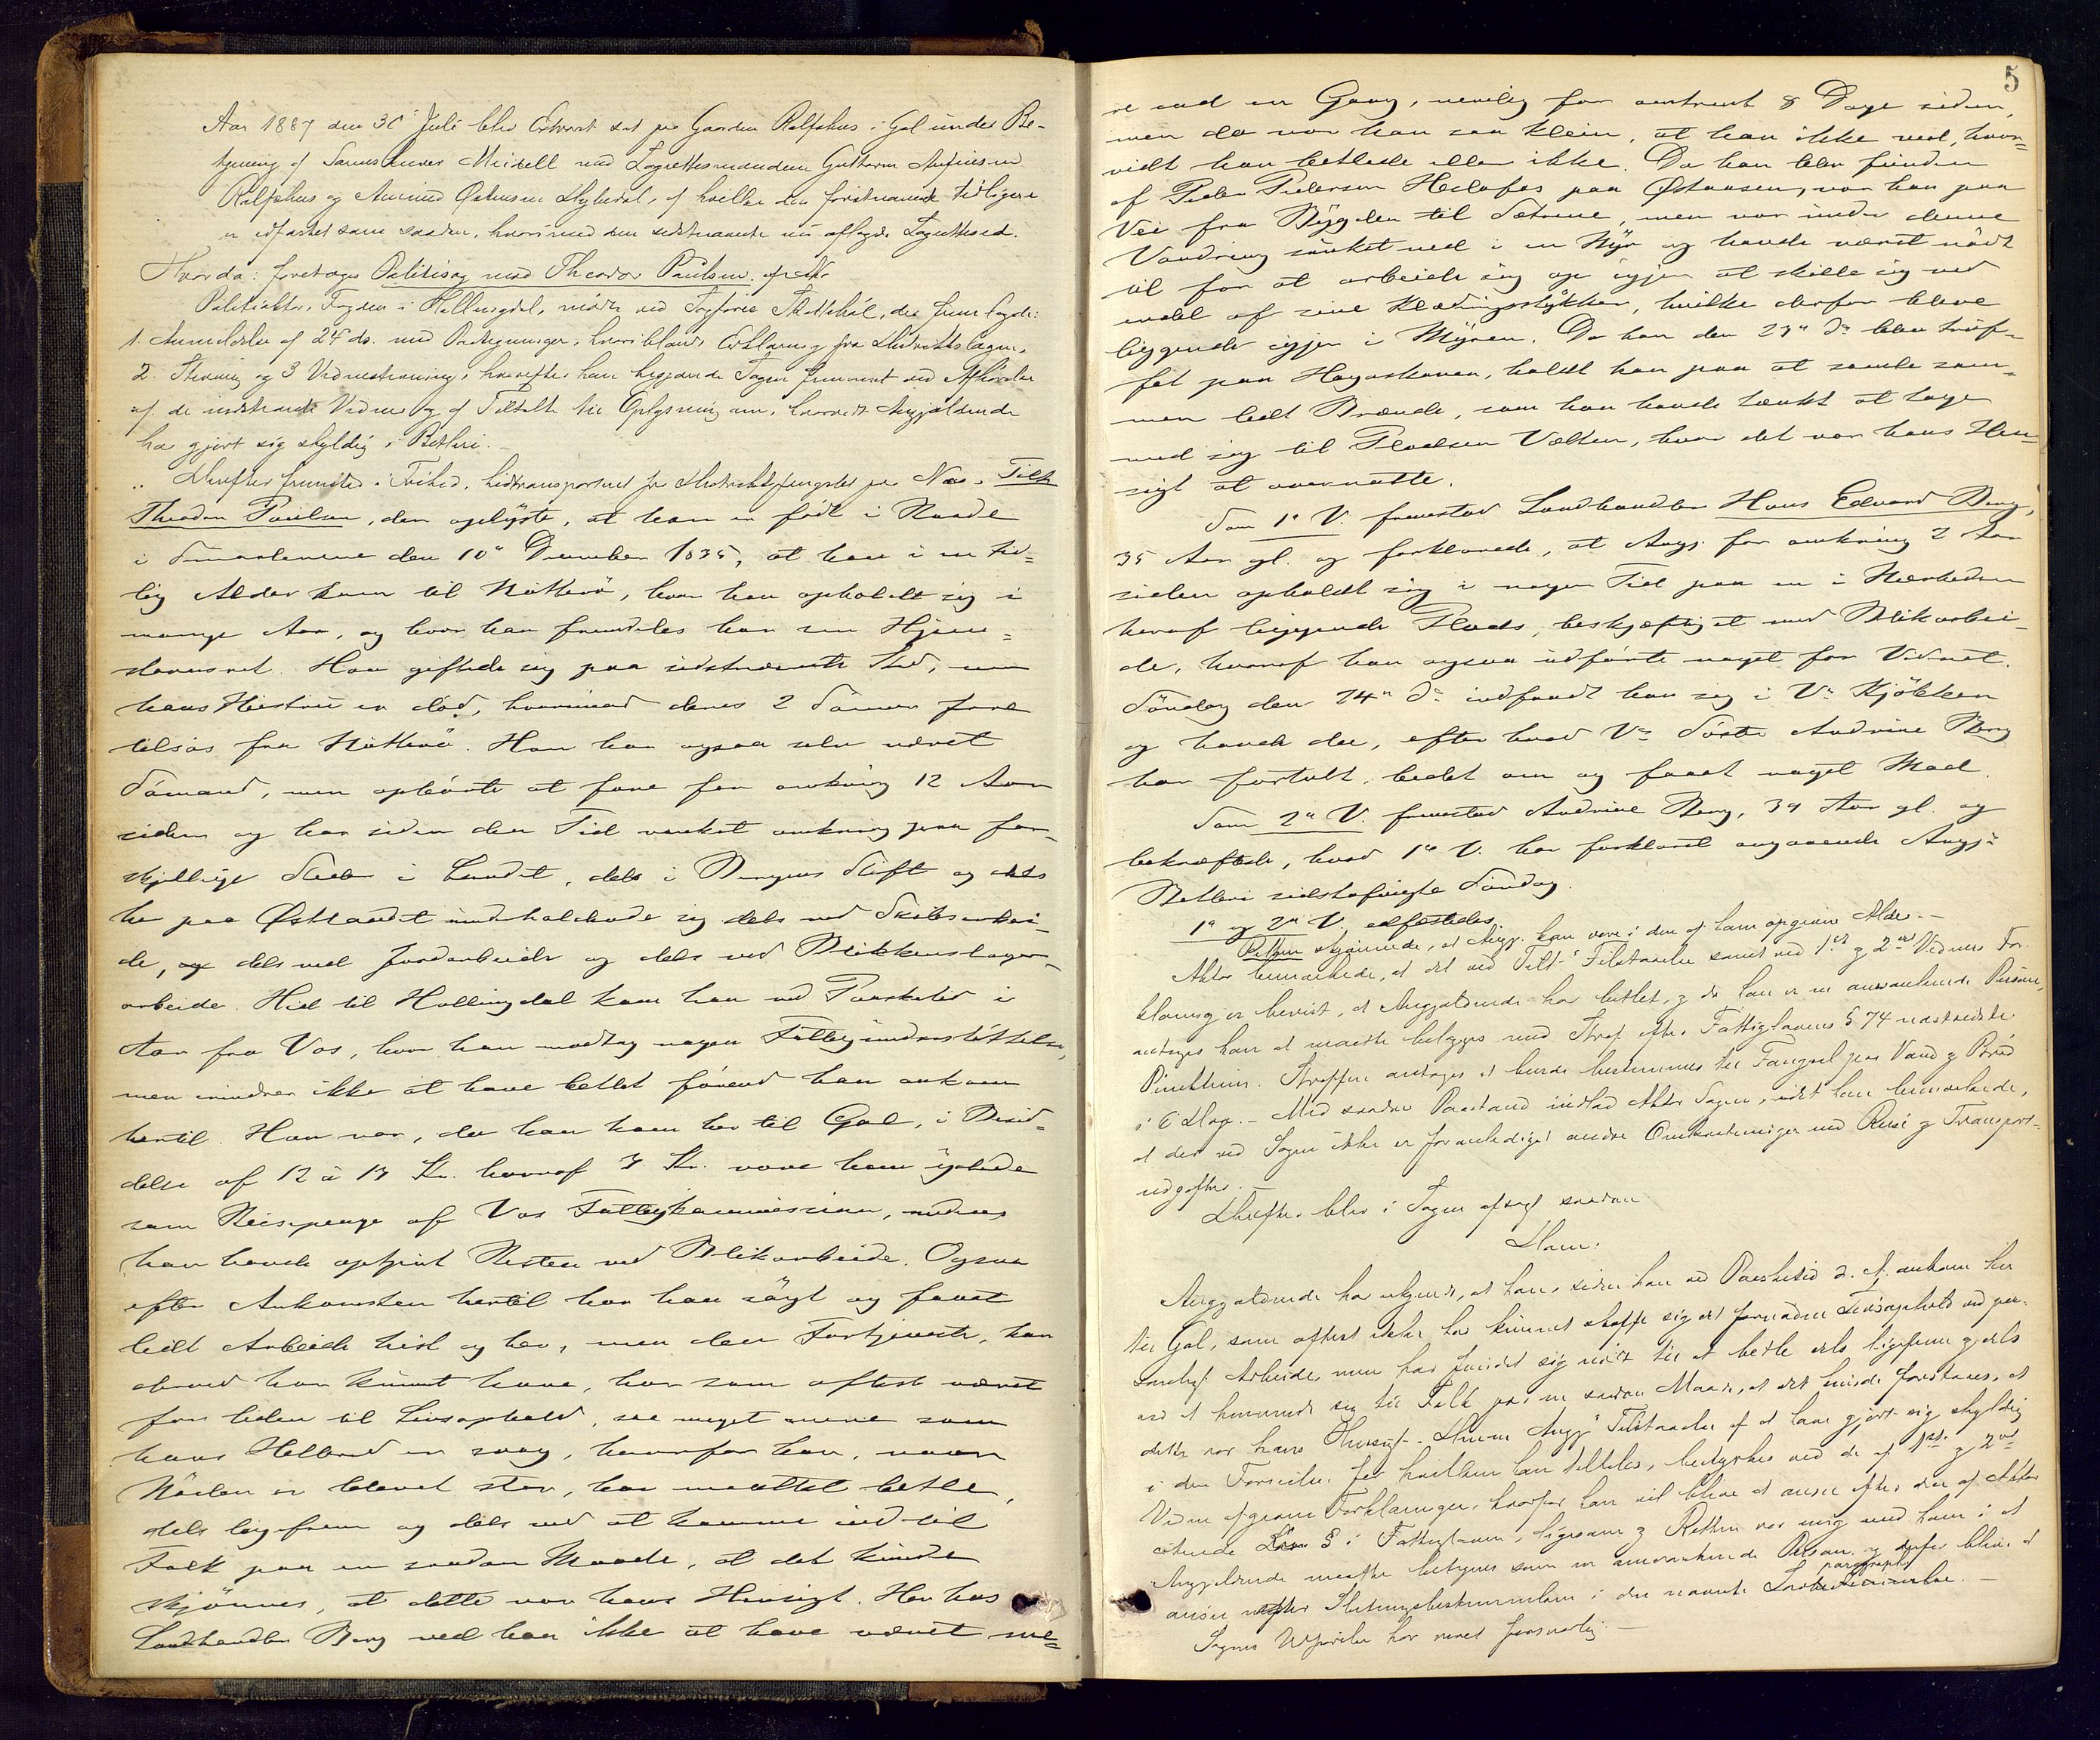 Aar 1887 den 30' Juli blev Extraret sat paa Gaarden Rolfshus i Gol under Be-
tjening af Sorenskriver Meidell med Lagrettesmændene Guttorm Arfinnsen
Rolfshus og Amund Østensen, af hvilke den førstnævnte tidligere
er edfæstet som saadan, hvorimod den sidstnævnte nu aflagde Lagretteseed.
Hvorda: foretoges Politisag mod Theodor Paulsen.
Politiaktor, Fogden i Hallingdal, mødte ved, der fremlagde:
1. Anmeldelse af 24' ds. med Paategninger, hvoriblandt Erklæring fra Distriktslægen,
2. Stevning og 3 Vidnestevning, hvorefter han begjærede Sagen fremmet ved Afhørelse
af de indstevnte Vidner og af Tiltalte til Oplysning om, hvorvidt Angjældende
har gjort sig skyldig i Betleri.
Derefter fremstod i Frihed, hidtransporteret fra Distriktsfængslet paa Næs, Tilt.
Theodor Paulsen, der oplyste, at han er født i Raade
i Smaalenene den 10' December 1835, at han i en tid=
lig Alder kom til Nøtterø, hvor han opholdt sig i
mange Aar, og hvor han fremdeles har sin Hjem=
stavnsret. Han giftede sig paa sidstnævnte Sted, men
hans Hustru er død, hvorimod deres 2 Sønner fare
tilsøs fra Nøtterø. Han har ogsaa selv været
Sømand, men ophørte at fare for omkring 12 Aar
siden og har siden den Tid vanket omkring paa for-
skjellige Steder i Landet, dels i Bergens Stift og dels
her paa Østlandet underholdende sig dels ved Skibsarbei-
de, og dels ved Jordarbeide og dels ved Blikkenslager-
arbeide. Hid til Hallingdal kom han ved Paasketid i
Aar fra Vos, hvor han modtog nogen Fattigunderstøttelse,
men erindrer ikke at have betlet førend han ankom
hertil. Han var, da han kom her til Gol, i Besid-
delse af 12 à 13 Kr. hvoraf 3 Kr. vare ham ydede
som Reisepenge af Vos Fattigkommission, medens
han havde optjent Resten ved Blikarbeide. Ogsaa
efter Ankomsten hertil har han søgt og faaet
lidt Arbeide hist og her, men den Fortjeneste, han
derved har kunnet have, har som oftest været
for liden til Livsophold, saa meget mere som
hans Helbred er svag, hvorfor han, naar
Nøden er blevet stor, har maattet betle,
dels ligefrem og dels ved at komme ind til
Folk paa en saadan Maade, at det kunde
skjønnes, at dette var hans Hensigt. Her hos
Landhandler Berg ved han ikke at have været me=
5
re end en Gang, nemlig for omtrent 8 Dage siden,
men da var han saa klein, at han ikke ved, hvor=
vidt han betlede eller ikke. Da han blev funden
af Peder Pedersen Heslafos paa Østaasen, var han paa
Vei fra Bygden til Sætrene, men var under denne
Vandring sunket ned i en Myr og havde været nødt
til for at arbeide sig op igjen at skille sig ved
endel af sine Klædningsstykker, hvilke derfor bleve
liggende igjen i Myren. Da han den 23' ds. blev truf-
fet paa Hagaskoven, holdt han paa at samle sam=
men lidt Brænde, som han havde tænkt at tage
med sig til Pladsen Vælten, hvor det var hans Hen-
sigt at overnatte.
Som 1' V. fremstod Landhandler Hans Edvard Berg,
35 Aar gl. og forklarede, at Angj. for omkring 2 Aar
siden opholdt sig i nogen Tid paa en i Nærheden
heraf liggende Plads, beskjæftiget med Blikarbei-
de, hvoraf han ogsaa udførte noget for Vidnet.
Søndag den 24' ds. indfandt han sig i V's Kjøkken
og havde der, efter hvad V's Søster Andrine Berg
har fortalt, bedet om og faaet noget Mad.
Som 2' V. fremstod Andrine Berg, 39 Aar gl. og
bekræftede, hvad 1' V. har forklaret angaaende Angj's
Betleri sidstafvigte Søndag.
1' og 2' V. edfæstedes.
Retten skjønnede, at Angj. kan være i den af ham opgivne Alder.-
Aktor bemærkede, at det ved Tilt's Tilstaaelse samt ved 1ste og 2det Vidnes For-
klaring er bevist, at Angjældende har betlet, og da han er en omvankende Person,
antoges han at maatte belægges med Straf efter Fattiglovens § 74 næstsidste
Punktum. Straffen antages at burde bestemmes til Fængsel paa Vand og Brød
i 6 Dage.- Med saadan Paastand indlod Aktor Sagen, idet han bemærkede,
at der ved Sagen ikke er foranlediget andre Omkostninger end Reise og Transport-
udgifter.-
Derefter blev i Sagen afsagt saadan
Dom:
Angjældende har erkjendt, at han, siden han ved Paasketid d. A. ankom her
til Gol, som oftest ikke har kunnet skaffe sig det fornødne Livsophold ved per-
sonligt Arbeide, men har fundet sig nødt til at betle dels ligefrem og dels
ved at henvende sig til Folk paa en saadan Maade, at det kunde forstaaes, at
dette var hans Hensigt. Denne Angj's Tilstaaelse af at have gjort sig skyldig
i den Forseelse, for hvilken han tiltales, bestyrkes ved de af 1ste og 2det
Vidne afgivne Forklaringer, hvorfor han vil blive at ansee efter den af Aktor
citerede § i Fattigloven, ligesom og Retten var enig med ham i at
Angjældende maatte betegnes som en omvankende Person og derfor blive at
paragraph
ansee efter Slutningsbestemmelsen i den nævnte.-
Sagens Udførelse har været forsvarlig.-